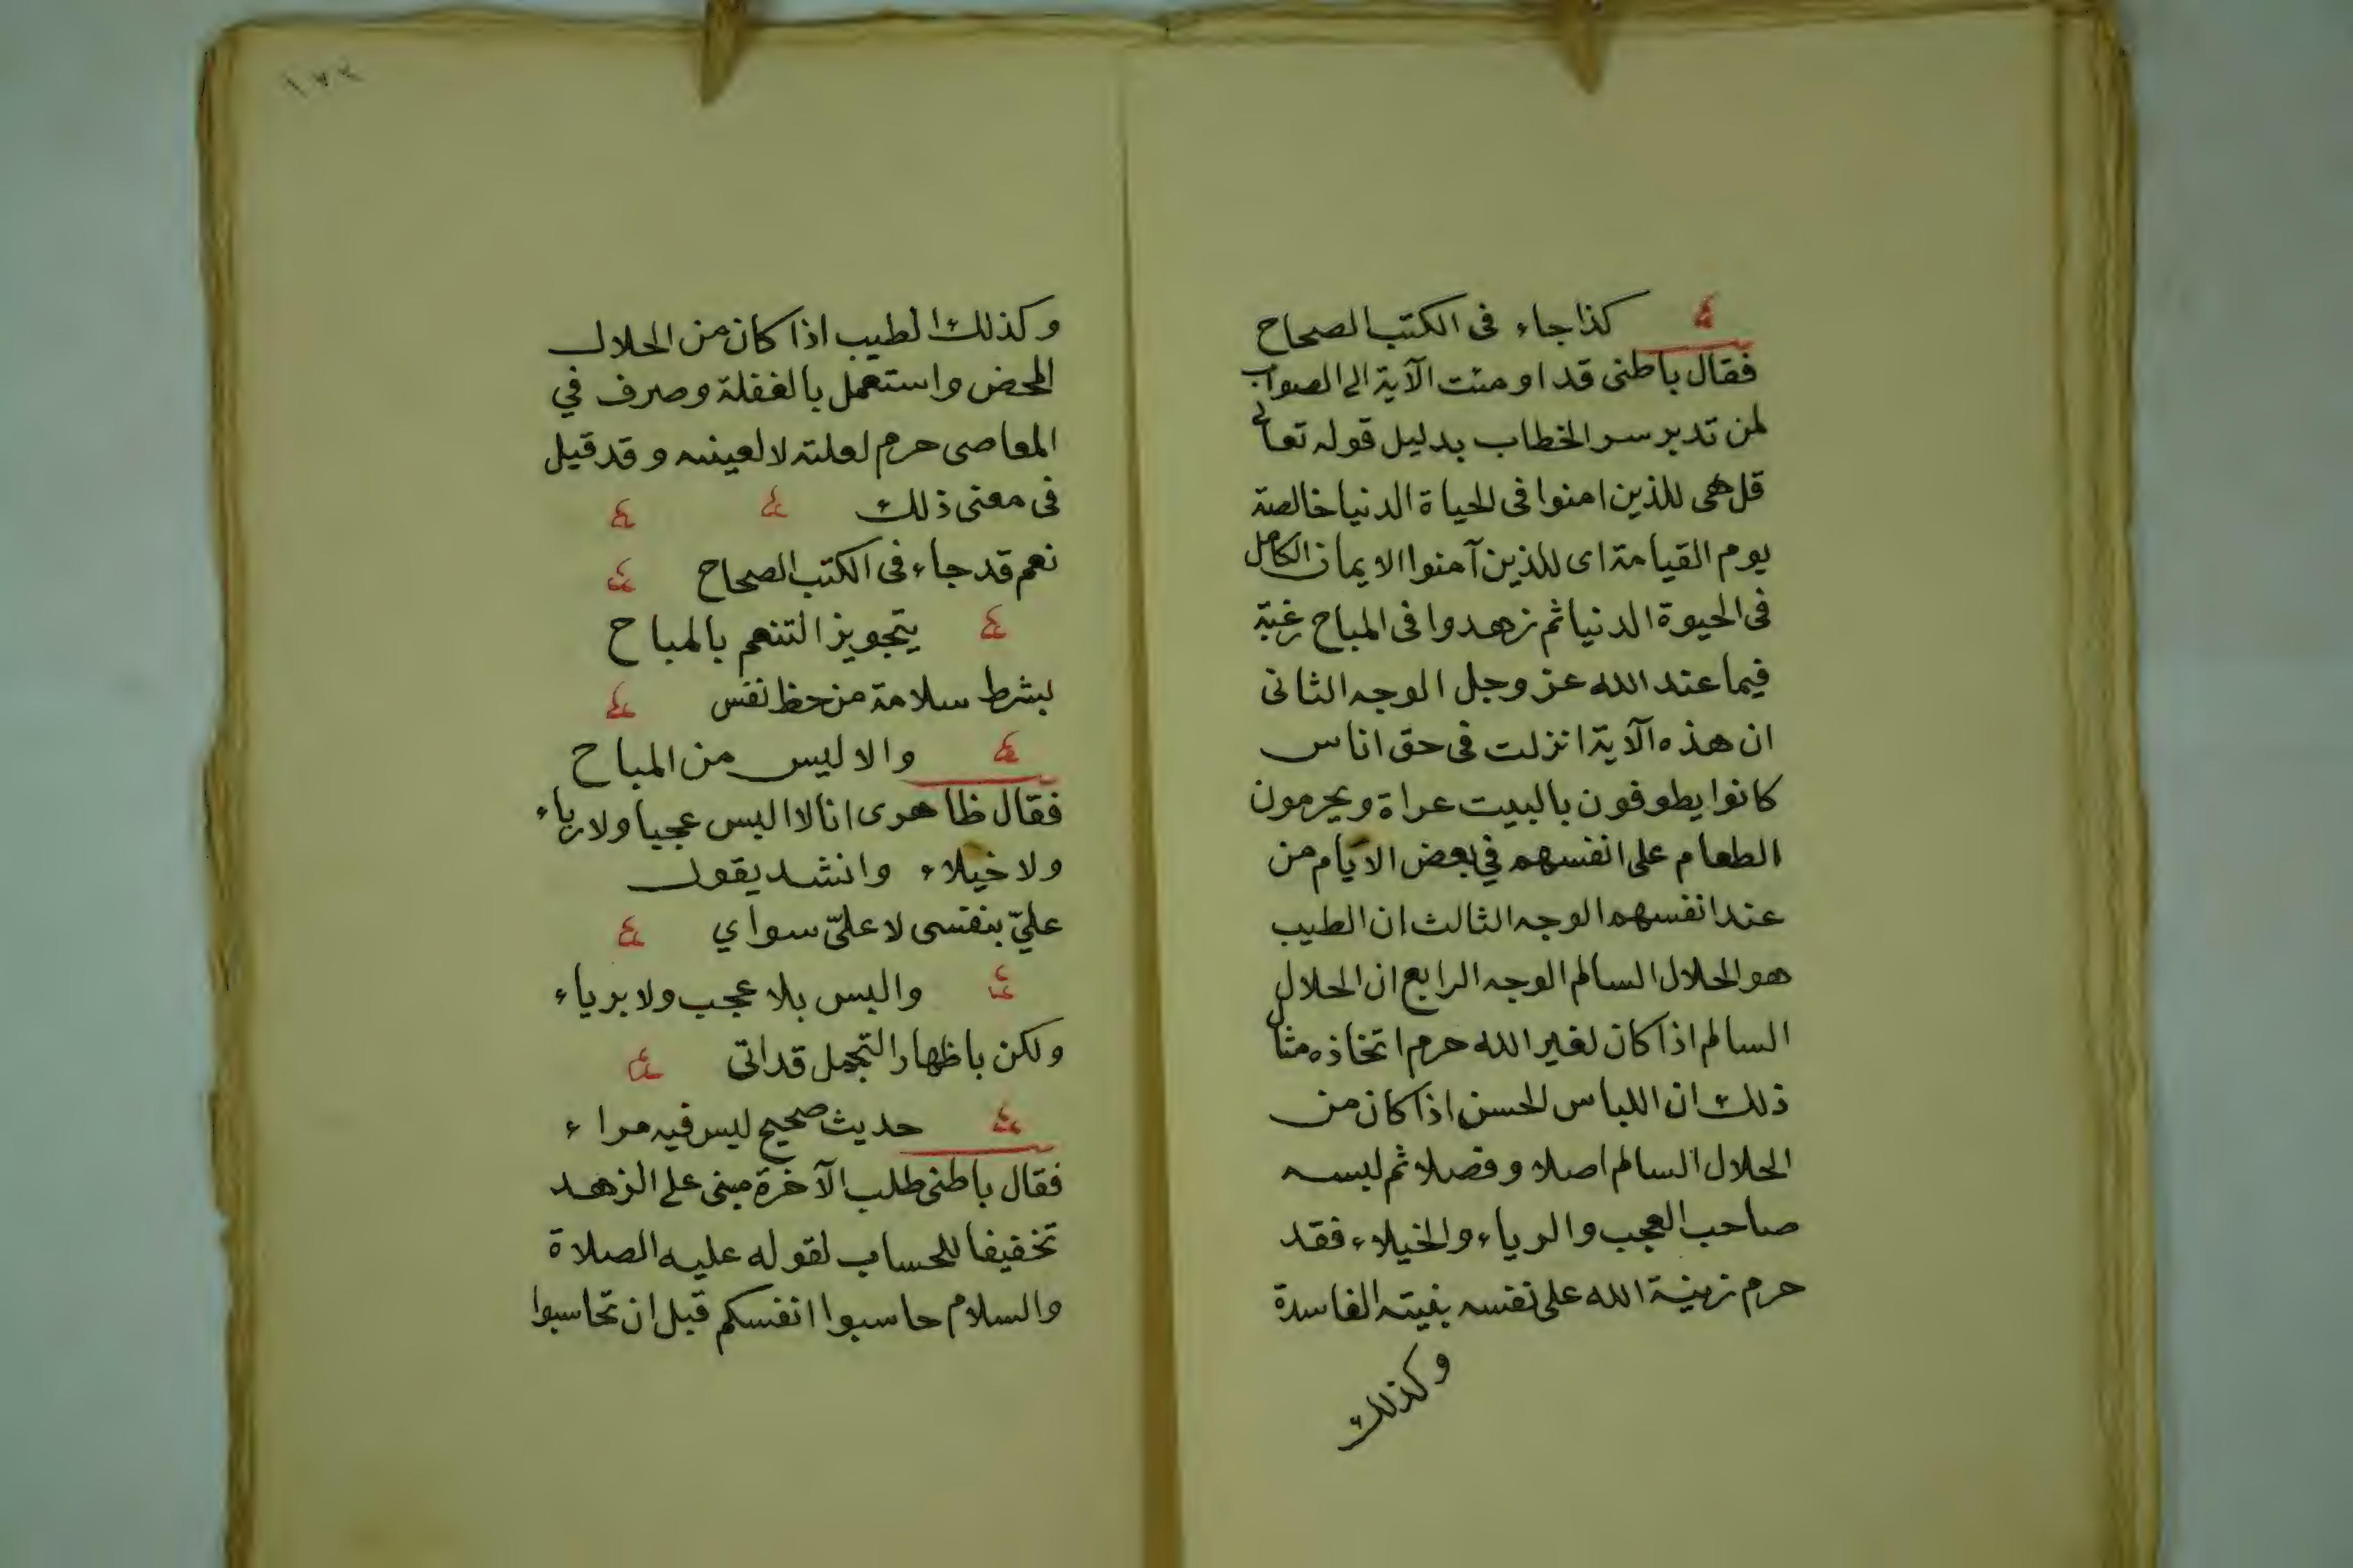 كذا جاء فى الكتب الصحاح
فقال باطنى قد اومئت الآية الى الصواب
لمن تدبر سر الخطاب بدليل قوله تعالى
قل هى للذين امنوا فى الحياة الدنيا خالصة
يوم القيامة اى للذين آمنوا الايمان الكامل
فى الحيوة الدنيا ثم زهدوا فى المباح رغبة
فيما عند الله عز وجل الوجه الثانى
ان هذه الآية انزلت فى حق اناس
كانوا يطوفون بالبيت عراة ويحرمون
الطعام على انفسهم في بعض الايام من
عند انفسهم الوجه الثالث ان الطيب
هو الحلال السالم الوجه الرابع ان الحلال
السالم اذا كان لغير الله حرم اتخاذه مثال
ذلك ان اللباس الحسن اذا كان من
الحلال السالم اصلا وفصلا ثم لبسه
صاحب العجب والرياء والخيلاء فقد
حرم زينة الله على نفسه بنيته الفاسدة
وكذلك
١٧٢
وكذلك الطيب اذا كان من الحلال
المحض واستعمل بالغفلة وصرف في
المعاصى حرم لعلته لا لعينه وقد قيل
فى معنى ذلك
نعم قد جاء فى الكتب الصحاح
بتجويز التنعم بالمباح
بشرط سلامة من حظ نفس
والا ليس من المباح
فقال ظاهرى انا لا البس عجبا ولا رياء
ولا خيلاء وانشد يقول
عليّ بنفسى لا عليّ سواي
والبس بلا عجب ولا برياء
ولكن باظهار التجمل قد اتى
حديث صحيح ليس فيه مراء
فقال باطنى طلب الآخرة مبنى على الزهد
تخفيفا للحساب لقوله عليه الصلاة
والسلام حاسبوا انفسكم قبل ان تحاسبوا